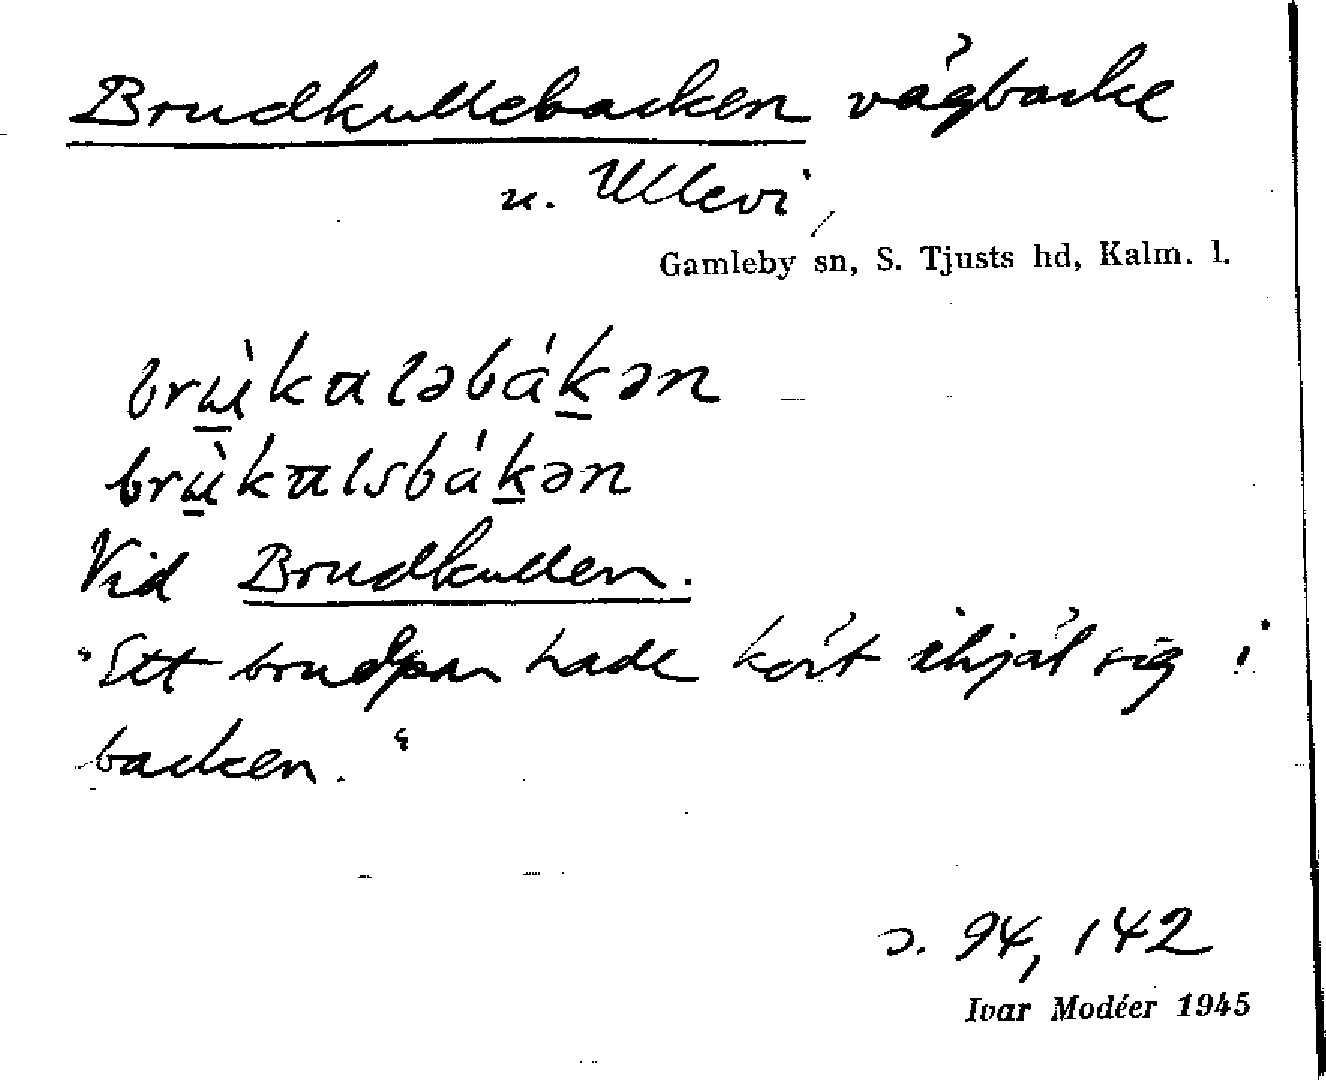 Brudkullebacken vägbacke
u. Ullevi,
Gamleby sn, S. Tjusts hd, Kalm. l.
brɯ̲̀kɑləbák̲ən
brɯ̲̀kɑlsbák̲ən
Vid Brudkullen.
"Ett brudpar hade kört ihjäl sig i
backen."
s. 94, 142
Ivar Modéer 1945